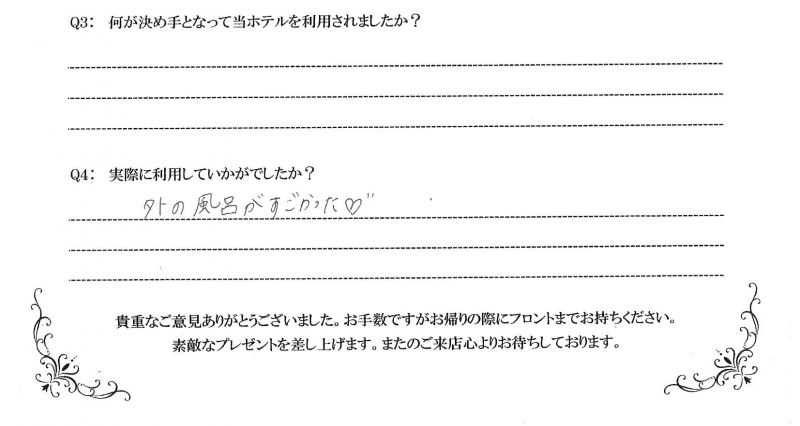 Q3: 何が決め手となって当ホテルを利用されましたか？
Q4: 実際に利用していかがでしたか？
外の風呂がすごかった♡"
貴重なご意見ありがとうございました。お手数ですがお帰りの際にフロントまでお持ちください。
素敵なプレゼントを差し上げます。またのご来店心よりお待ちしております。